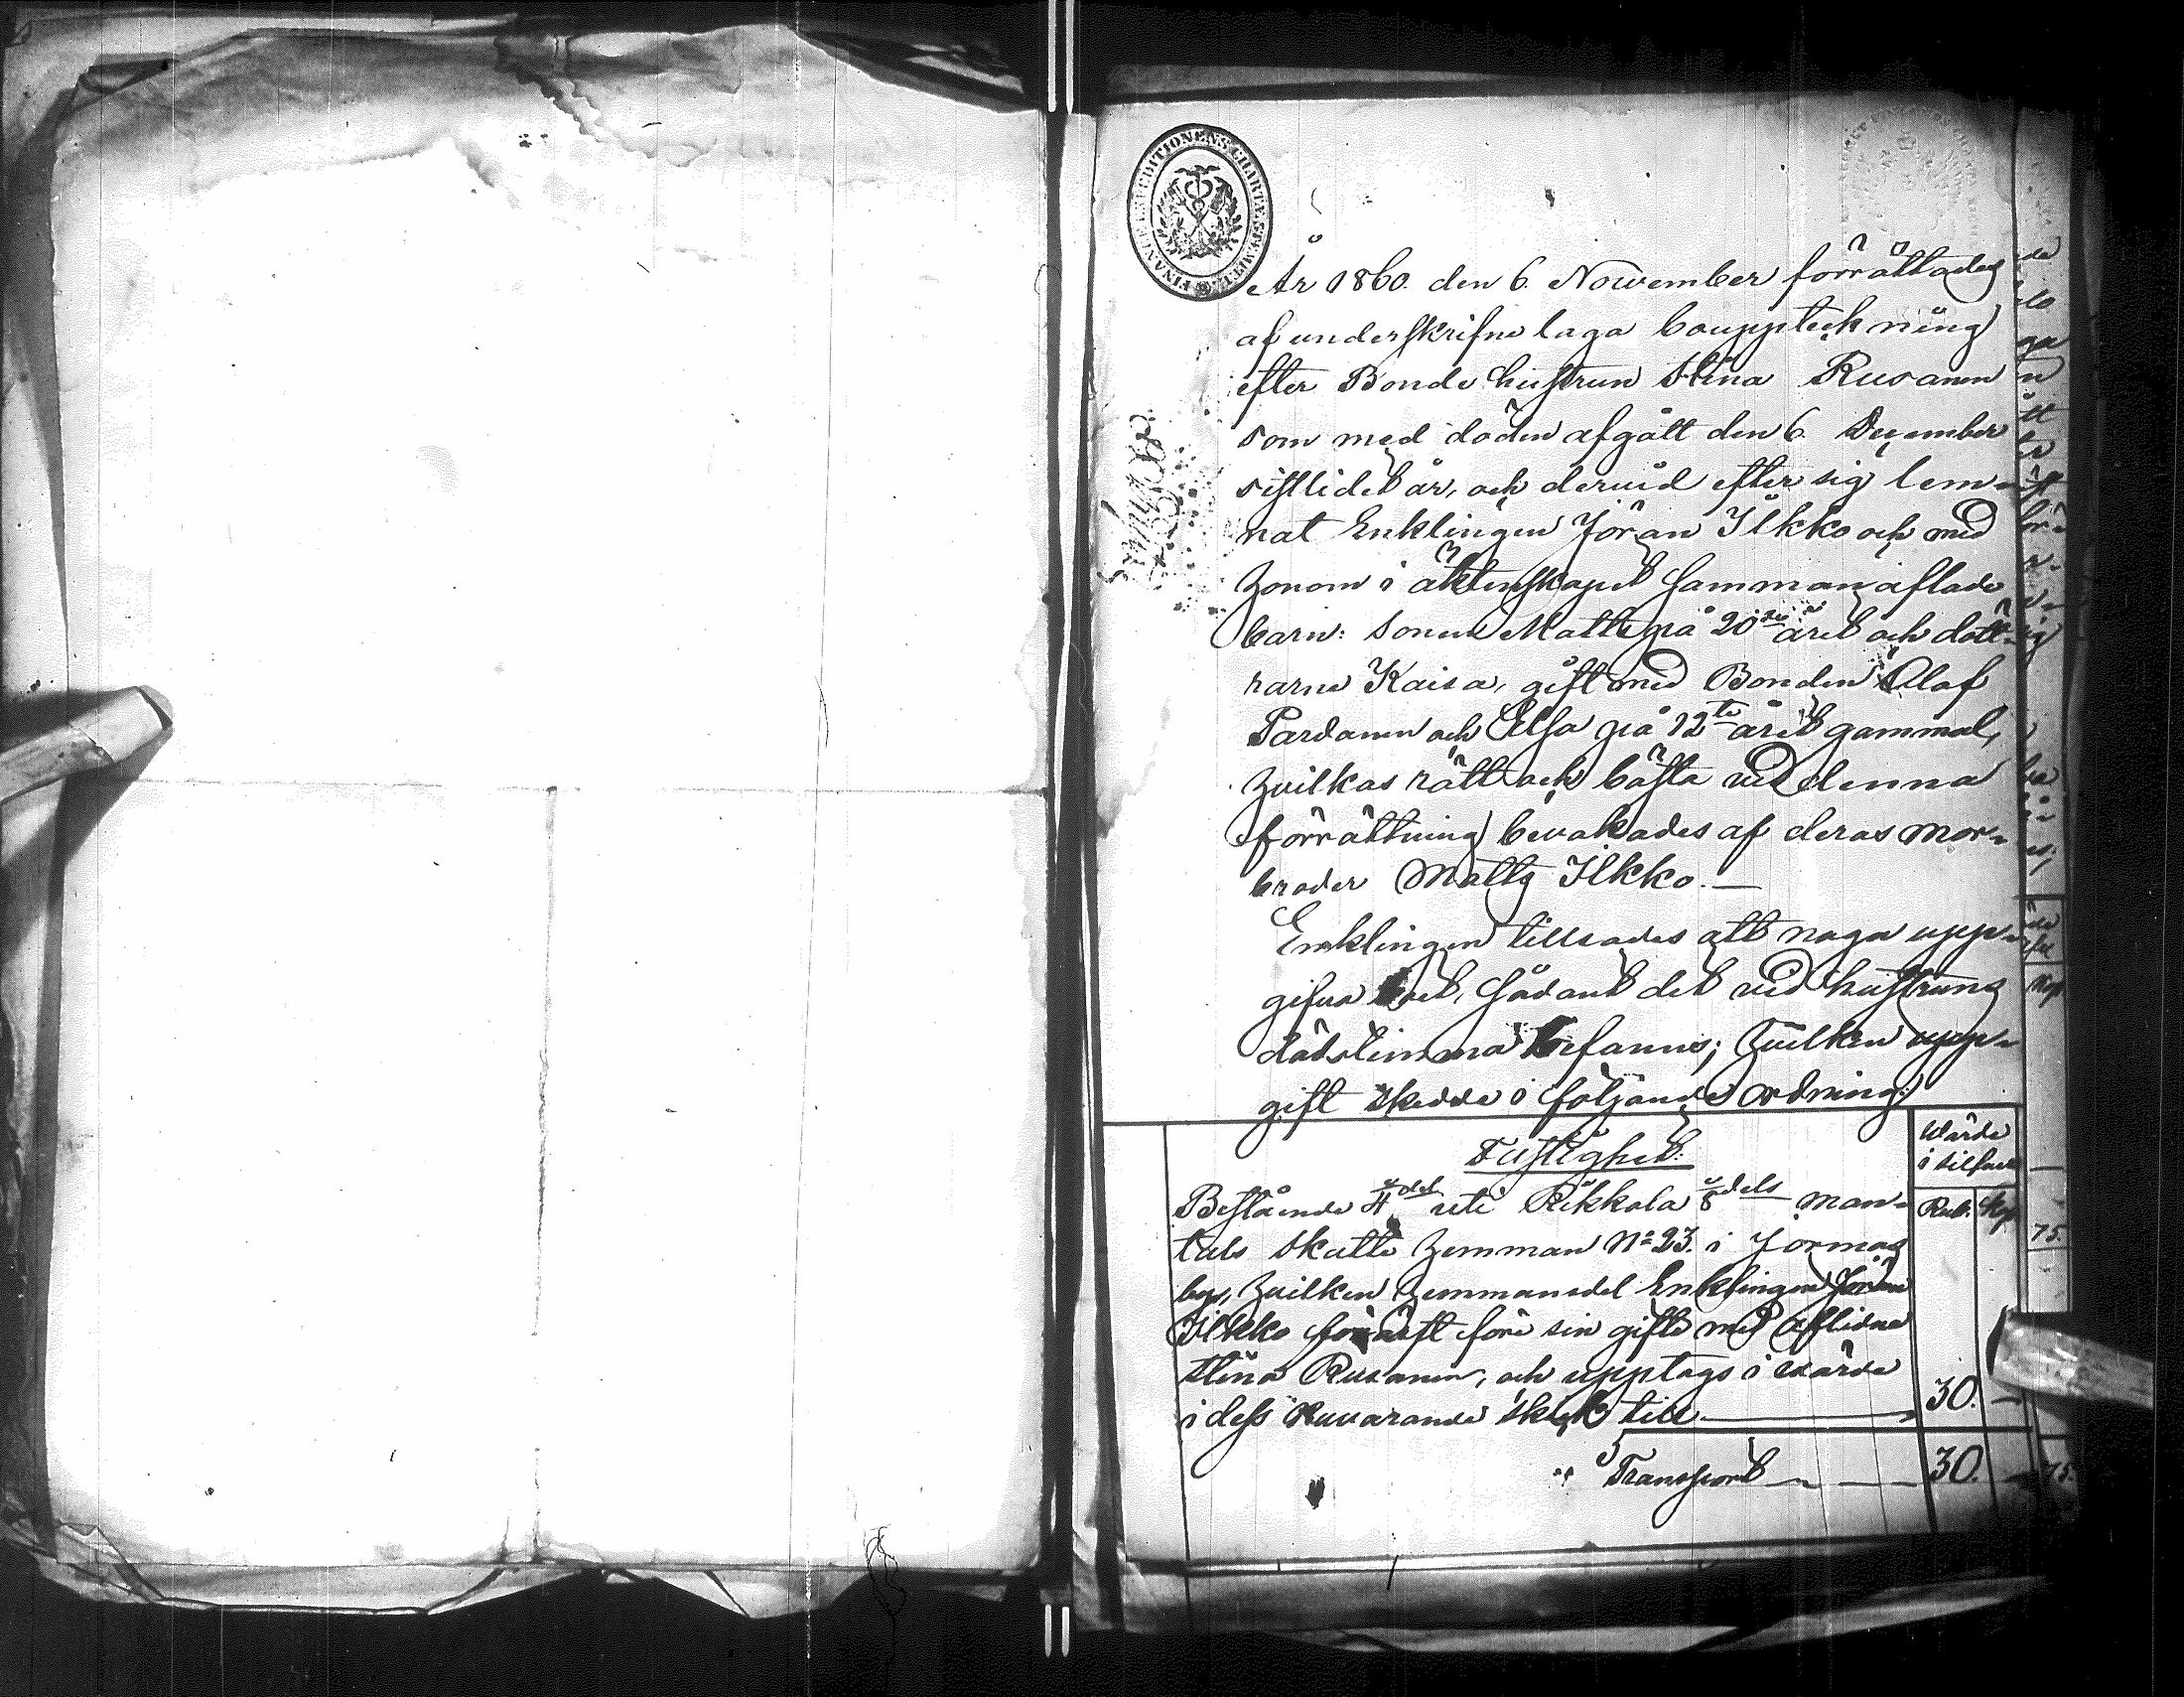 FINANCE EXPEDITIONENS CHARTÆ STEMPEL
År 1860. den 6. November förrättades
af underskrifne laga bouppteckning
efter Bonde hustrun Stina Rusanen
som med döden afgått den 6. December
sistlidet år, och dervid efter sig lem-
nat Enklingen Jöran Ilkko och med
honom i äktenskapet sammanaflade
barn: Sonen Matts på 20de året och dött-
rarne Kaisa, gift med Bonden Olaf
Pardanen och Elsa på 12te året gammal,
hvilkas rätt och bästa vid denna
förrättning bevakades af deras mor-
broder Matts Ilkko. —
Enklingen tillsades att noga upp-
gifva boet, sådant det vid hustruns
dödstimma befanns; hvilken upp-
gift skedde i följande ordning:
Fastighet:
Wärde
i silfver
Rub. Kop
Bestående 1/4del uti Rikkola 1/8dels man-
tals Skatte hemman No 23. i Jormas
by, hvilken hemmansdel Enklingen Jöran
Ilkko förvärft före sin gifte med Aflidne
Stina Rusanen, och upptogs i värde
i dess nuvarande skick till — 30. —
Transport — — 30. —